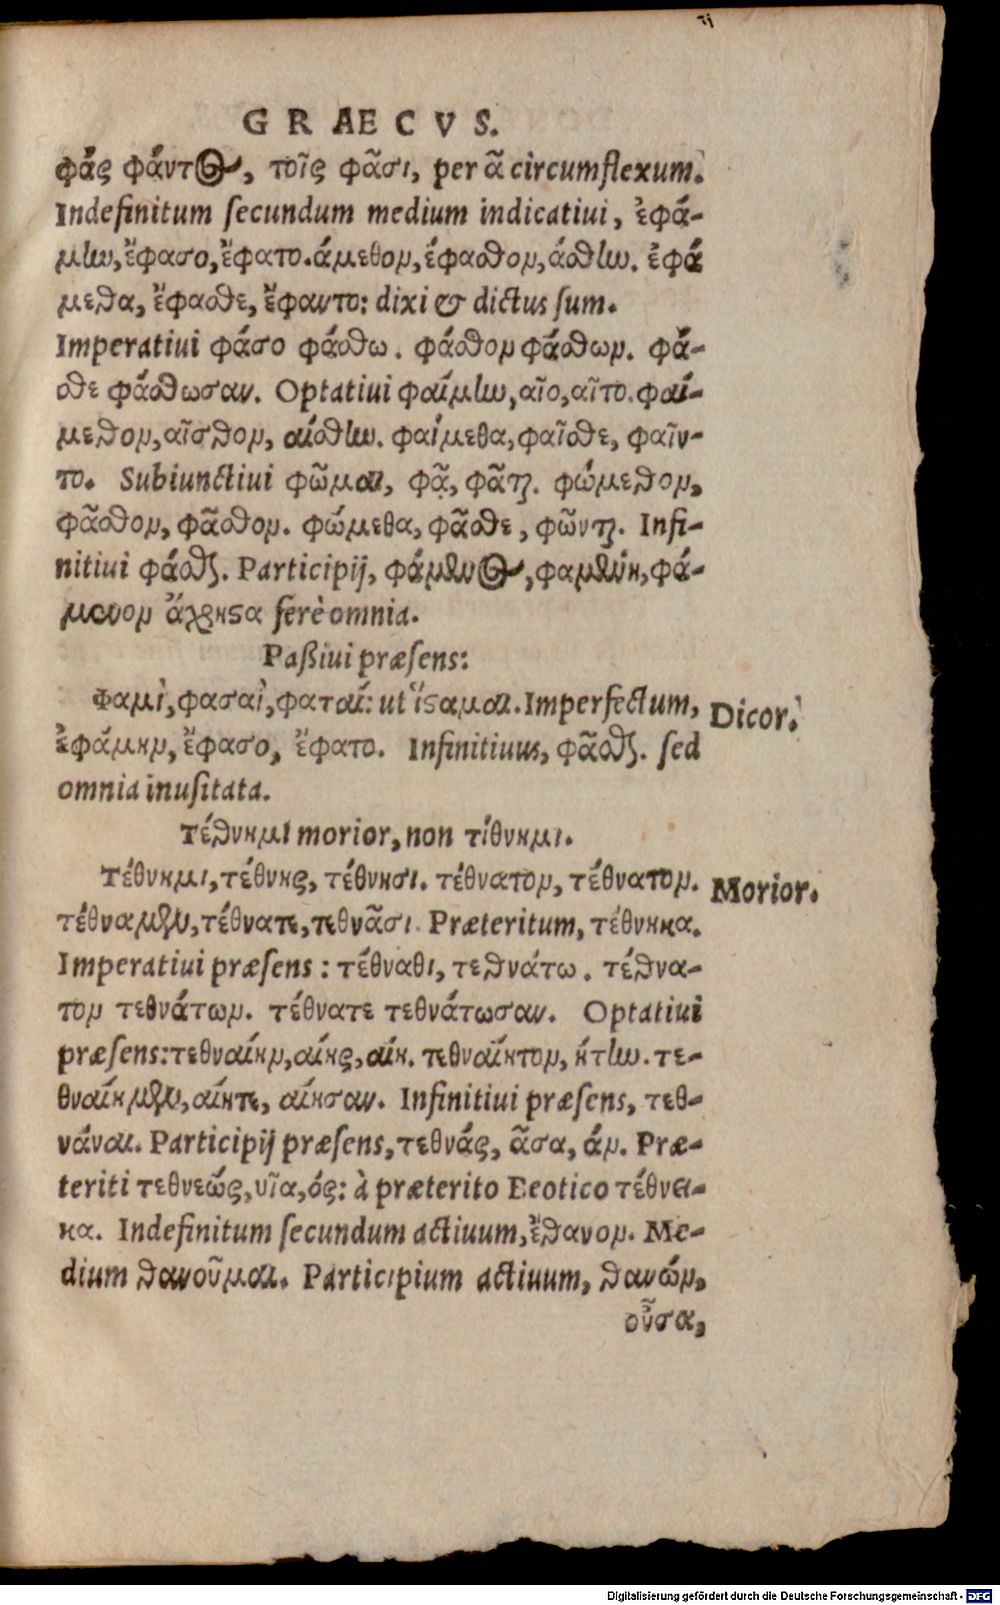 GRAECVS.
φάς φάντος, τοῖς φᾶσι, per ᾶ circumflexum.
Indefinitum secundum medium indicatiui, ἐφά-
μην, ἔφασο, ἔφατο. άμεθον, έφασθον, άσθην. ἐφά
μεθα, ἔφασθε, ἔφαντο: dixi & dictus sum.
Imperatiui φάσο φάσθω. φάσθον φάσθων. φά-
σθε φάσθωσαν. Optatiui φαίμην, αῖο, αῖτο. φαί-
μεθον, αῖσθον, αίσθην. φαίμεθα, φαῖσθε, φαῖν-
το. Subiunctiui φῶμαι, φᾷ, φᾶται. φώμεθον,
φᾶσθον, φᾶσθον. φώμεθα, φᾶσθε, φῶνται. Infi-
nitiui φάσθαι. Participij, φάμενος, φαμένη, φά-
μενον ἄχρηστα ferè omnia.
Paßiui præsens:
Φαμὶ, φασαὶ, φαταί: ut ἵσαμαι. Imperfectum,
Dicor.
ἐφάμην, ἔφασο, ἔφατο. Infinitiuus, φᾶσθαι. sed
omnia inusitata.
Τέθνημι morior, non τίθνημι.
Τέθνημι, τέθνης, τέθνησι. τέθνατον, τέθνατον.
Morior.
τέθναμεν, τέθνατε, τεθνᾶσι. Præteritum, τέθνηκα.
Imperatiui præsens: τέθναθι, τεθνάτω. τέθνα-
τον τεθνάτων. τέθνατε τεθνάτωσαν. Optatiui
præsens: τεθναίην, αίης, αίη. τεθναίητον, ήτην. τε-
θναίημεν, αίητε, αίησαν. Infinitiui præsens, τεθ-
νάναι. Participij præsens, τεθνάς, ᾶσα, άν. Præ-
teriti τεθνεώς, υῖα, ός: à præterito Beotico τέθνει-
κα. Indefinitum secundum actiuum, ἔθανον. Me-
dium θανοῦμαι. Participium actiuum, θανών,
οῦσα,
Digitalisierung gefördert durch die Deutsche Forschungsgemeinschaft - DFG